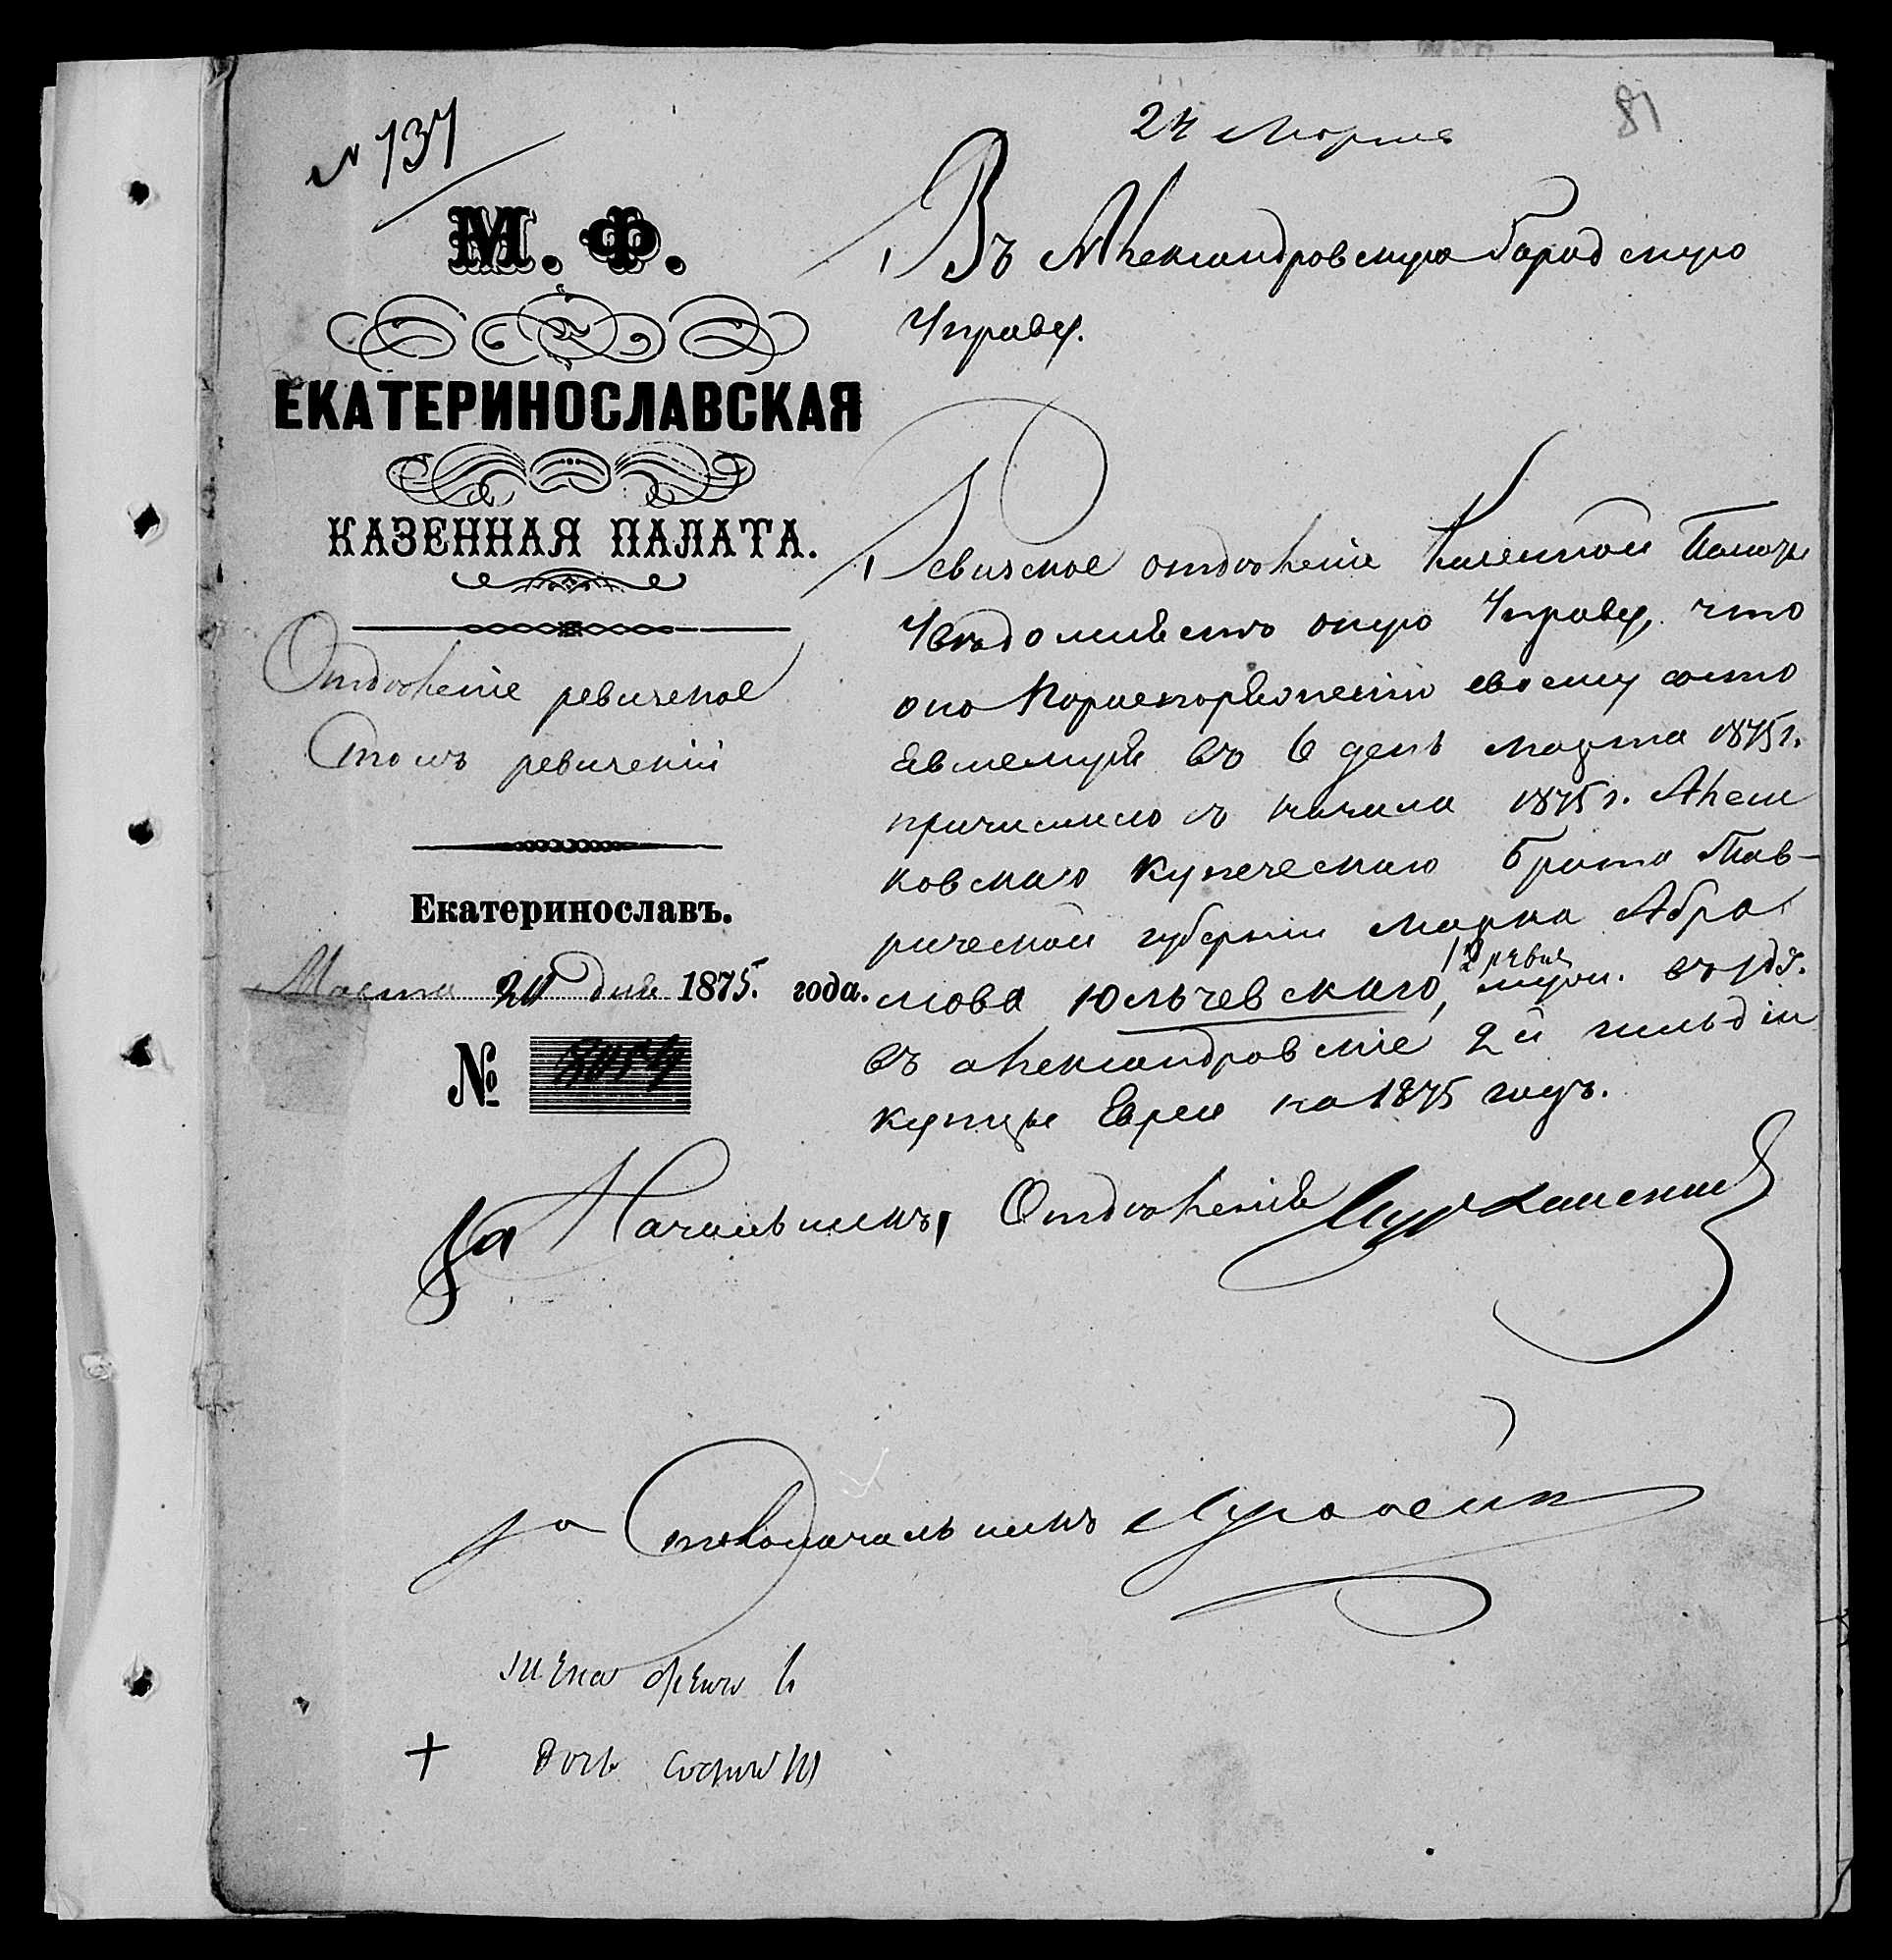 № 137
24 Марта
81
М. Ф.
ЕКАТЕРИНОСЛАВСКАЯ
КАЗЕННАЯ ПАЛАТА.
Отдѣленіе ревизское
Столъ ревизскій
Екатеринославъ.
Марта 20 дня 1875. года.
№
Въ Александровскую Городскую
Управу.
Ревизское отдѣленіе Казенной Палаты
увѣдомляетъ оную Управу, что
оно по
въ 6 день марта 1875 г.
причислило съ начала 1875 г. Алеш
ковскаго купеческаго брата Тав-
рической губерніи Марка Абра
12 ревиз
мова Юльчевскаго,
въ Александровскіе 2й гильдіи
купцы Евреи на 1875 годъ.
За Начальникъ Отдѣленія
За Столоначальникъ